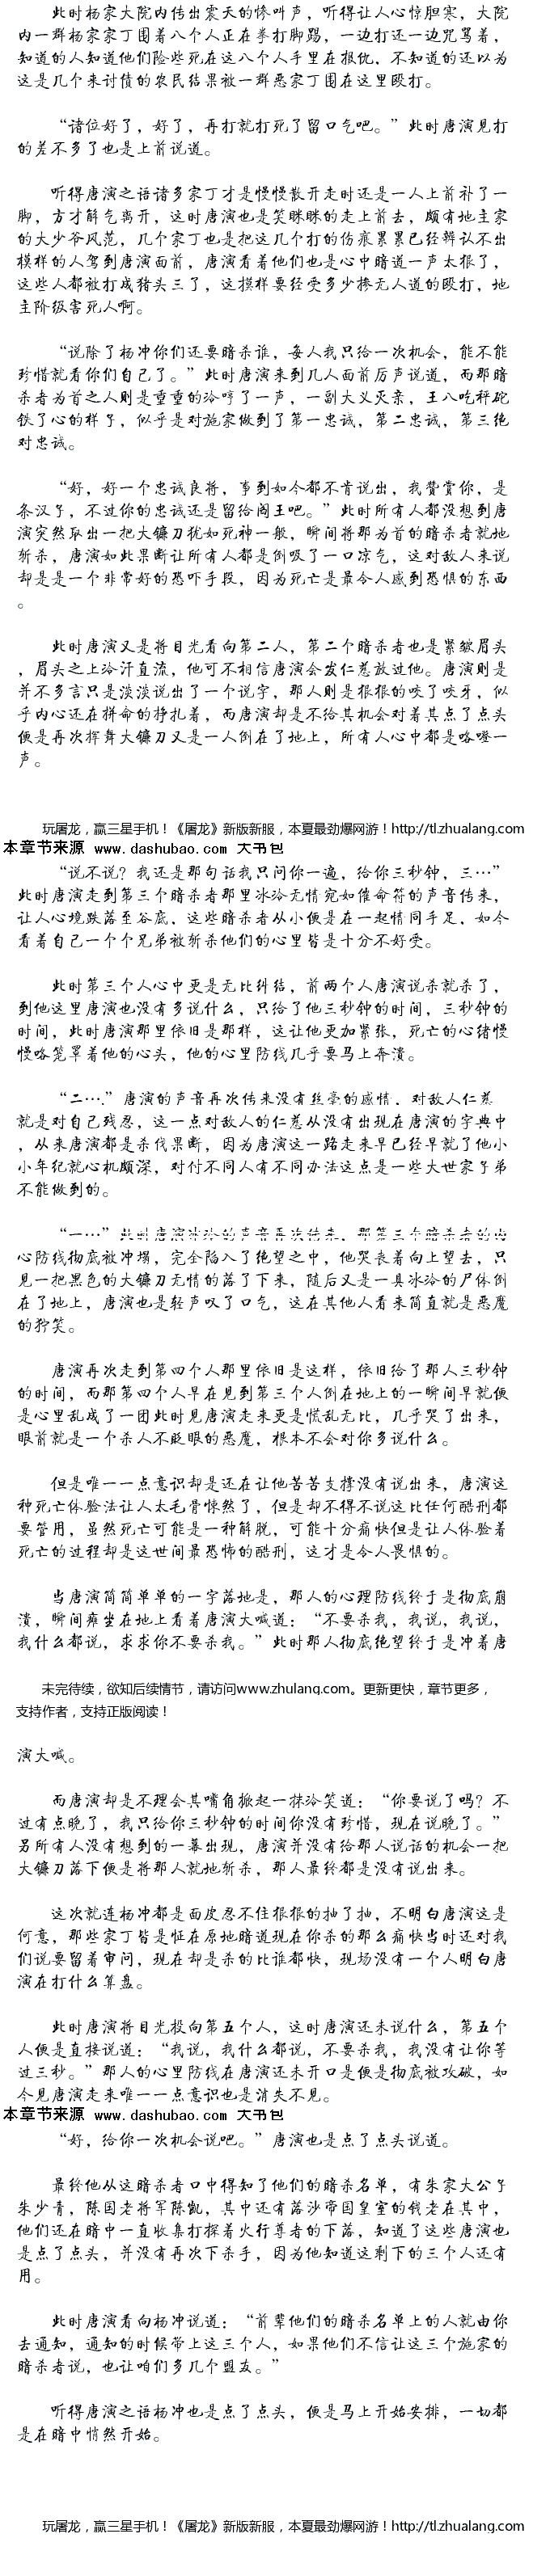 此时杨家大院内传出震天的惨叫声，听得让人心惊胆寒，大院
内一群杨家家丁围着八个人正在拳打脚踢，一边打还一边咒骂着，
知道的人知道他们险些死在这八个人手里在报仇，不知道的还以为
这是几个来讨债的农民结果被一群恶家丁围在这里殴打。
“诸位好了，好了，再打就打死了留口气吧。”此时唐演见打
的差不多了也是上前说道。
听得唐演之语诸多家丁才是慢慢散开走时还是一人上前补了一
脚，方才解气离开，这时唐演也是笑眯眯的走上前去，颇有地主家
的大少爷风范，几个家丁也是把这几个打的伤痕累累已经辨认不出
模样的人驾到唐演面前，唐演看着他们也是心中暗道一声太狠了，
这些人都被打成猪头三了，这模样要经受多少掺无人道的殴打，地
主阶级害死人啊。
“说除了杨冲你们还要暗杀谁，每人我只给一次机会，能不能
珍惜就看你们自己了。”此时唐演来到几人面前厉声说道，而那暗
杀者为首之人则是重重的冷哼了一声，一副大义灭亲，王八吃秤砣
铁了心的样子，似乎是对施家做到了第一忠诚，第二忠诚，第三绝
对忠诚。
“好，好一个忠诚良将，事到如今都不肯说出，我赞赏你，是
条汉子，不过你的忠诚还是留给阎王吧。”此时所有人都没想到唐
演突然取出一把大镰刀犹如死神一般，瞬间将那为首的暗杀者就地
斩杀，唐演如此果断让所有人都是倒吸了一口凉气，这对敌人来说
却是是一个非常好的恐吓手段，因为死亡是最令人感到恐惧的东西
。
此时唐演又是将目光看向第二人，第二个暗杀者也是紧皱眉头
，眉头之上冷汗直流，他可不相信唐演会发仁慈放过他。唐演则是
并不多言只是淡淡说出了一个说字，那人则是狠狠的咬了咬牙，似
乎内心还在拼命的挣扎着，而唐演却是不给其机会对着其点了点头
便是再次挥舞大镰刀又是一人倒在了地上，所有人心中都是咯噔一
声。
玩屠龙，赢三星手机！《屠龙》新版新服，本夏最劲爆网游！http://tl.zhualang.com
本章节来源 www.dashubao.com 大书包
“说不说？我还是那句话我只问你一遍，给你三秒钟，三…”
此时唐演走到第三个暗杀者那里冰冷无情宛如催命符的声音传来，
让人心境跌落至谷底，这些暗杀者从小便是在一起情同手足，如今
看着自己一个个兄弟被斩杀他们的心里皆是十分不好受。
此时第三个人心中更是无比纠结，前两个人唐演说杀就杀了，
到他这里唐演也没有多说什么，只给了他三秒钟的时间，三秒钟的
时间，此时唐演那里依旧是那样，这让他更加紧张，死亡的心绪慢
慢咯笼罩着他的心头，他的心里防线几乎要马上奔溃。
“二….”唐演的声音再次传来没有丝毫的感情．对敌人仁慈
就是对自己残忍，这一点对敌人的仁慈从没有出现在唐演的字典中
，从来唐演都是杀伐果断，因为唐演这一路走来早已经早就了他小
小年纪就心机颇深，对付不同人有不同办法这点是一些大世家子弟
不能做到的。
“一…”此时唐演冰冷的声音再次传来，那第三个暗杀者的内
心防线彻底被冲塌，完全陷入了绝望之中，他哭丧着向上望去，只
见一把黑色的大镰刀无情的落了下来，随后又是一具冰冷的尸体倒
在了地上，唐演也是轻声叹了口气，这在其他人看来简直就是恶魔
的狞笑。
唐演再次走到第四个人那里依旧是这样，依旧给了那人三秒钟
的时间，而那第四个人早在见到第三个人倒在地上的一瞬间早就便
是心里乱成了一团此时见唐演走来更是慌乱无比，几乎哭了出来，
眼前就是一个杀人不眨眼的恶魔，根本不会对你多说什么。
但是唯一一点意识却是还在让他苦苦支撑没有说出来，唐演这
种死亡体验法让人太毛骨悚然了，但是却不得不说这比任何酷刑都
要管用，虽然死亡可能是一种解脱，可能十分痛快但是让人体验着
死亡的过程却是这世间最恐怖的酷刑，这才是令人畏惧的。
当唐演简简单单的一字落地是，那人的心理防线终于是彻底崩
溃，瞬间瘫坐在地上看着唐演大喊道：“不要杀我，我说，我说，
我什么都说，求求你不要杀我。”此时那人彻底绝望终于是冲着唐
未完待续，欲知后续情节，请访问www.zhulang.com。更新更快，章节更多，
支持作者，支持正版阅读！
演大喊。
而唐演却是不理会其嘴角掀起一抹冷笑道：“你要说了吗？不
过有点晚了，我只给你三秒钟的时间你没有珍惜，现在说晚了。”
另所有人没有想到的一幕出现，唐演并没有给那人说话的机会一把
大镰刀落下便是将那人就地斩杀，那人最终都是没有说出来。
这次就连杨冲都是面皮忍不住狠狠的抽了抽，不明白唐演这是
何意，那些家丁皆是怔在原地暗道现在你杀的那么痛快当时还对我
们说要留着审问，现在却是杀的比谁都快，现场没有一个人明白唐
演在打什么算盘。
此时唐演将目光投向第五个人，这时唐演还未说什么，第五个
人便是直接说道：“我说，我什么都说，不要杀我，我没有让你等
过三秒。”那人的心里防线在唐演还未开口是便是彻底被攻破，如
今见唐演走来唯一一点意识也是消失不见。
本章节来源 www.dashubao.com 大书包
“好，给你一次机会说吧。”唐演也是点了点头说道。
最终他从这暗杀者口中得知了他们的暗杀名单，有朱家大公子
朱少青，陈国老将军陈凯，其中还有落沙帝国皇室的钱老在其中，
他们还在暗中一直收集打探着火行尊者的下落，知道了这些唐演也
是点了点头，并没有再次下杀手，因为他知道这剩下的三个人还有
用。
此时唐演看向杨冲说道：“前辈他们的暗杀名单上的人就由你
去通知，通知的时候带上这三个人，如果他们不信让这三个施家的
暗杀者说，也让咱们多几个盟友。”
听得唐演之语杨冲也是点了点头，便是马上开始安排，一切都
是在暗中悄然开始。
玩屠龙，赢三星手机！《屠龙》新版新服，本夏最劲爆网游！http://tl.zhualang.com